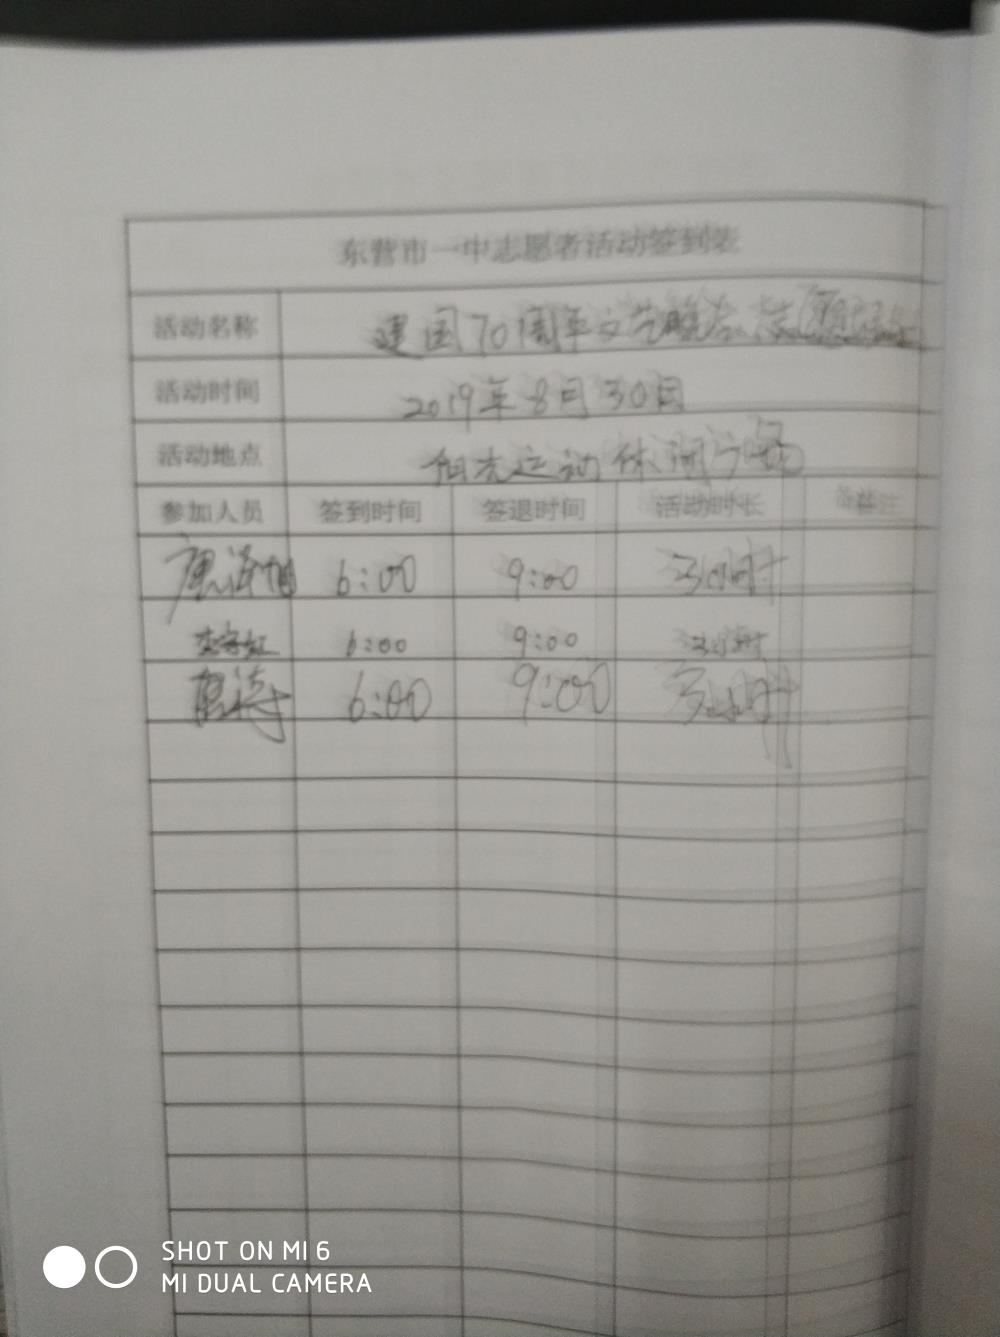 东营市一中志愿者活动签到表
活动名称 建国70周年文艺晚会志愿
活动时间 2019年8月30日
活动地点 运动休闲广场
参加人员 签到时间 签退时间 活动时长 备注
6:00 9:00 3小时
6:00 9:00 3小时
6:00 9:00 3小时
SHOT ON MI 6
MI DUAL CAMERA